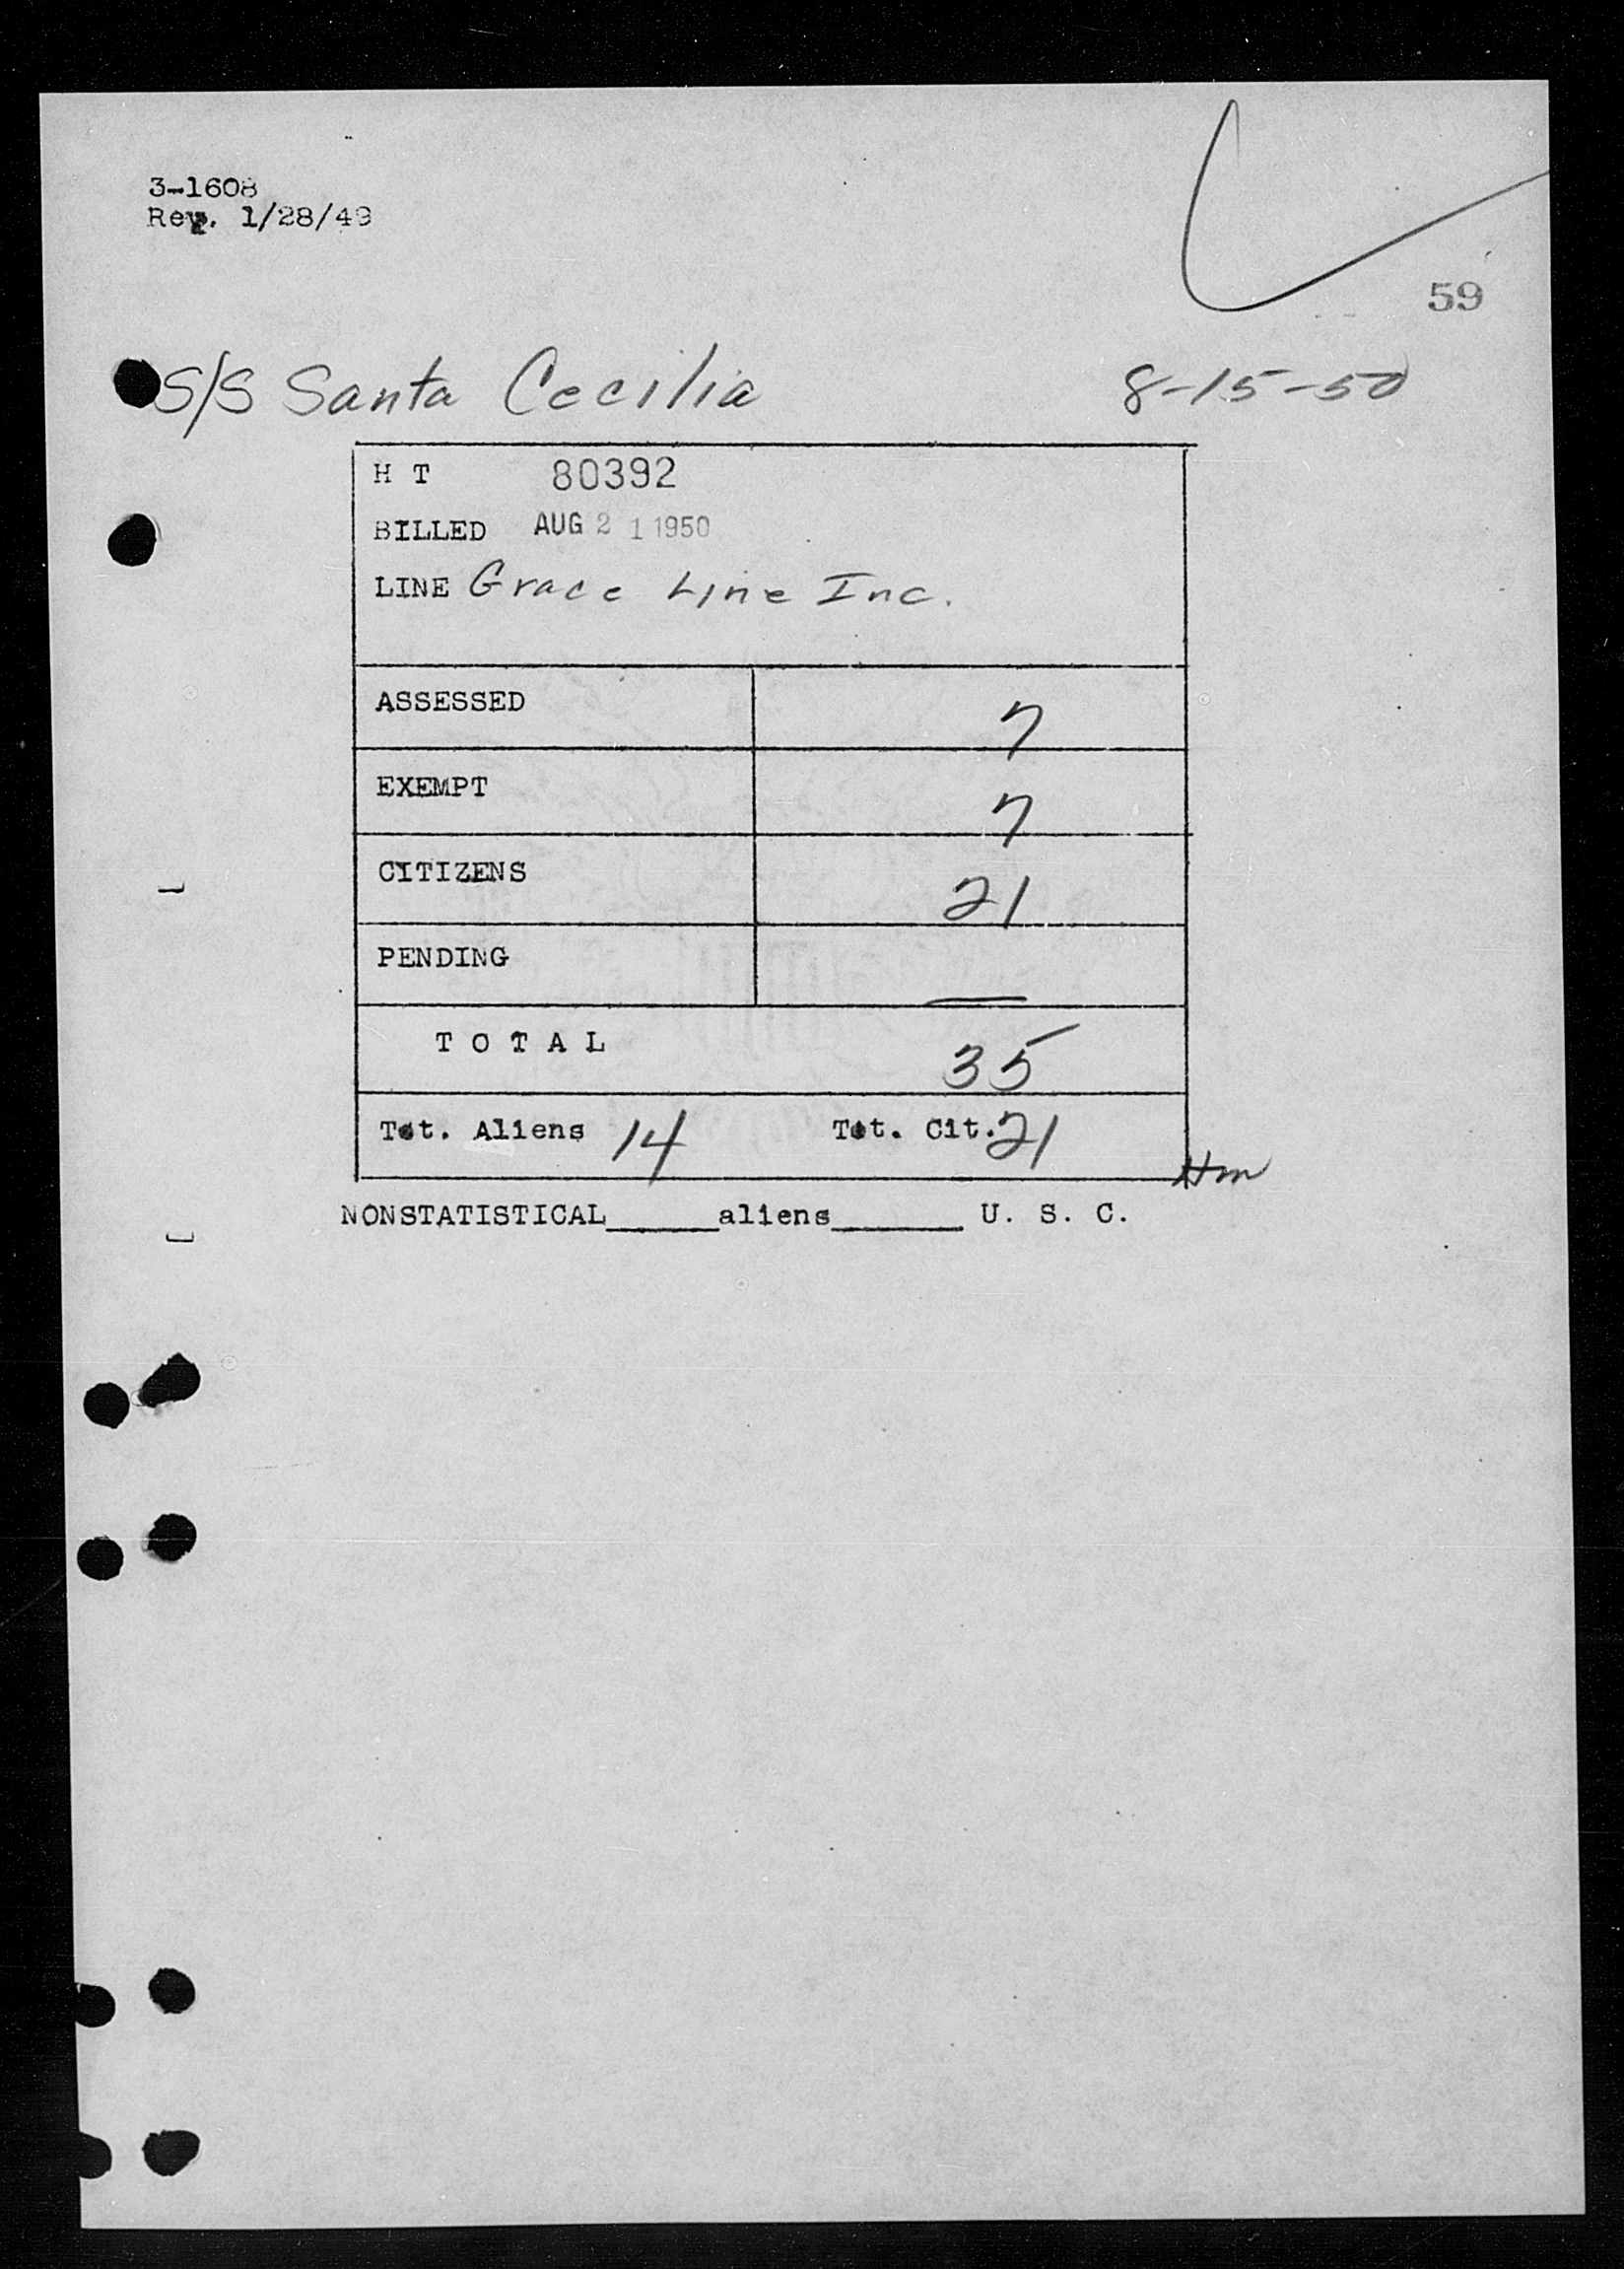 3-1608
Rev. 1/28/49
59
S/S Santa Cecilia 8-15-50
H T 80392
BILLED AUG 21 1950
LINE Grace Line Inc.
ASSESSED 7
EXEMPT 7
CITIZENS 21
PENDING —
T O T A L 35
Tot. Aliens 14 Tot. Cit. 21
Hm
NONSTATISTICAL______aliens_______ U. S. C.